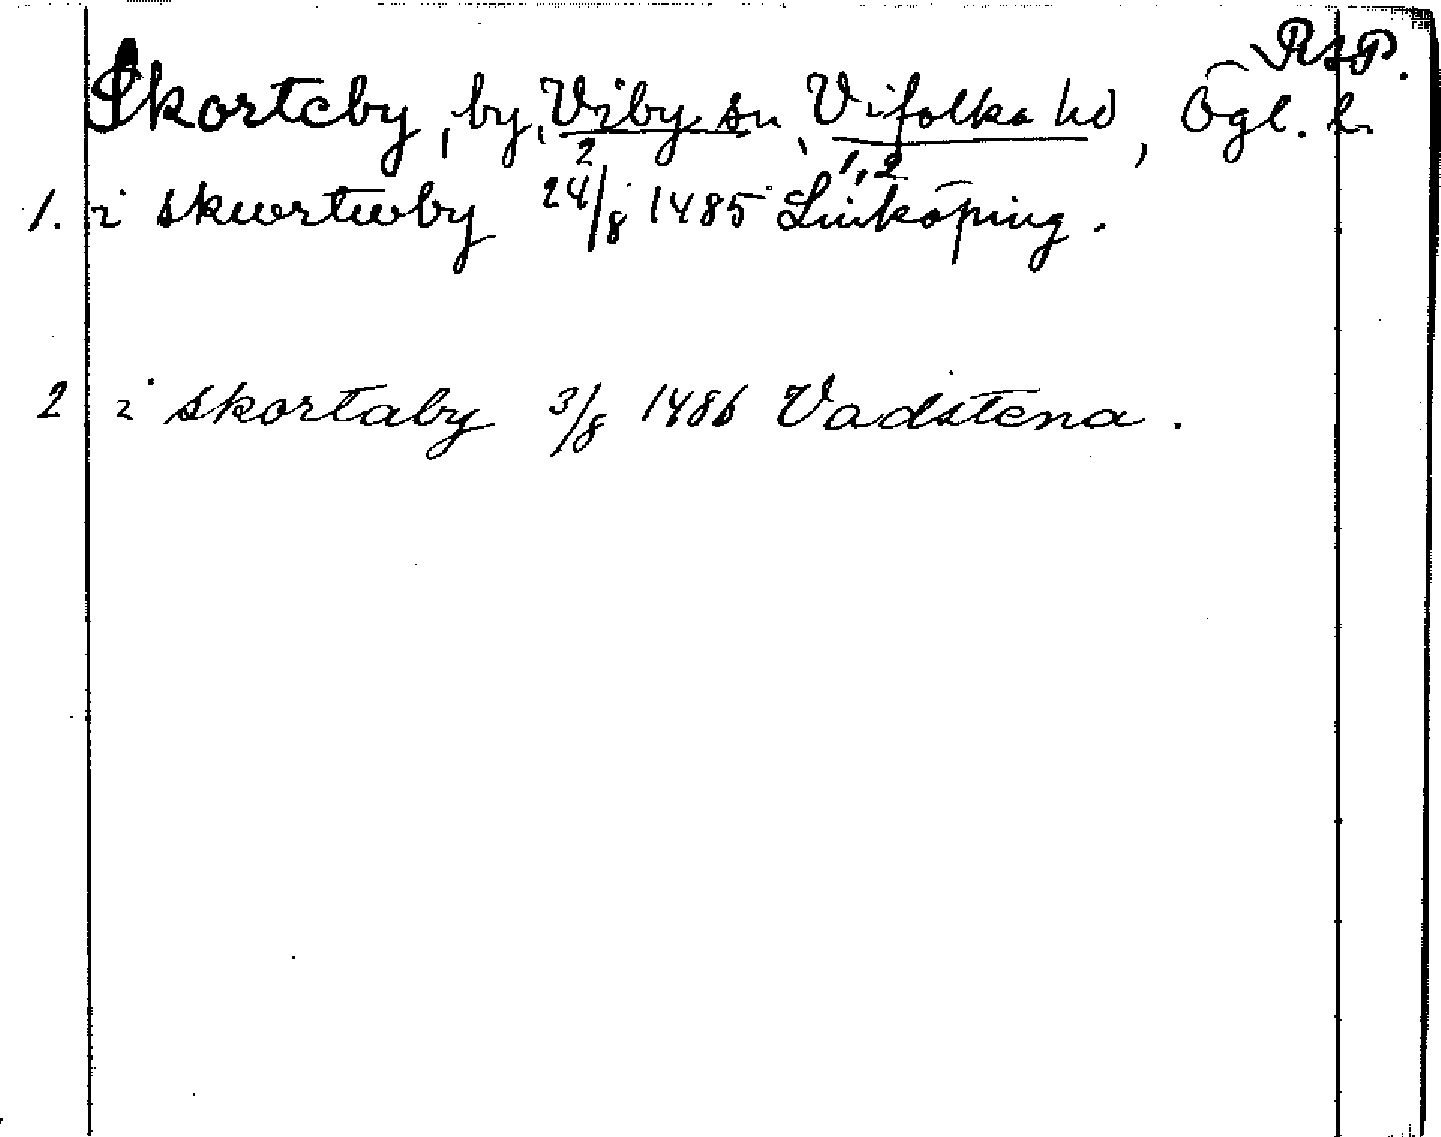 RAP.
Skorteby, by, Viby sn, Vifolka hd, Ögl. l.
2 1,2
1. i skwrtwby 24/8 1485 Linköping.
2 i skortaby 3/8 1486 Vadstena.